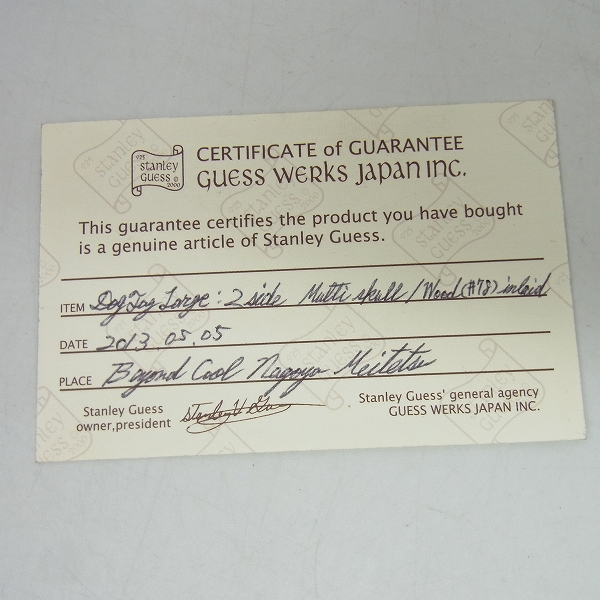 925
Stanley
GUESS ©
2000
CERTIFICATE of GUARANTEE
GUESS WERKS JAPAN INC.
This guarantee certifies the product you have bought
is a genuine article of Stanley Guess.
ITEM Dog Tag Large : 2 side Multi skull / Wood (#78) inlaid
DATE 2013 05.05
PLACE Beyond Cool Nagoya Meitetsu
Stanley Guess
owner,president
Stanley Guess' general agency
GUESS WERKS JAPAN INC.